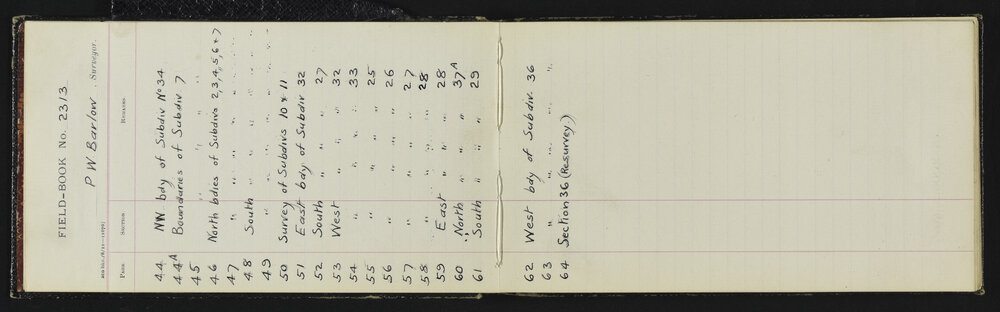 FIELD-BOOK No. 2313
P W Barlow, Surveyor.
Page Section Remarks
44 NW bdy of Subdiv No 34
44A Boundaries of Subdiv 7
45 " " "
46 North bdies of Subdivs 2,3,4,5,6 & 7
47 " " " " " " " "
48 South " " " " " " "
49 " " " " " " " "
50 Survey of Subdivs 10 & 11
51 East bdy of Subdiv 32
52 South " " 27
53 West " " 32
54 " " " 33
55 " " " 25
56 " " " 26
57 " " " 27
58 " " " 28
59 East " " 28
60 North " " 37A
61 South " " 29
62 West bdy of Subdiv. 36
63 " " " " "
64 Section 36 (Resurvey)